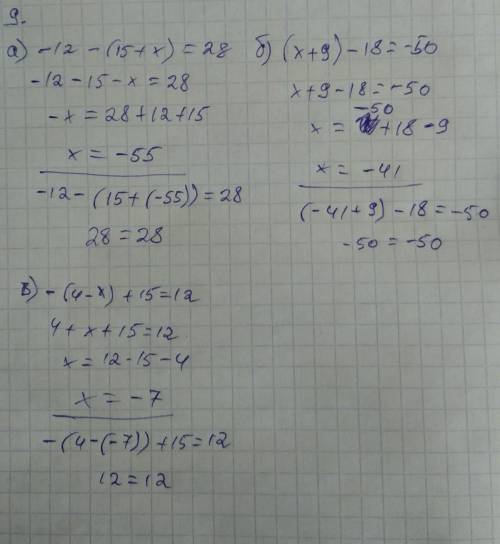 9.
а) -12 - (15+x) = 28
-12 - 15 - x = 28
-x = 28+12+15
x = -55
-12 - (15+(-55)) = 28
28 = 28
б) (x+9) - 18 = -50
x+9 - 18 = -50
-50
x = +18 - 9
x = -41
(-41+9) - 18 = -50
-50 = -50
в) -(4-x) + 15 = 12
4 + x + 15 = 12
x = 12 - 15 - 4
x = -7
-(4-(-7)) + 15 = 12
12 = 12